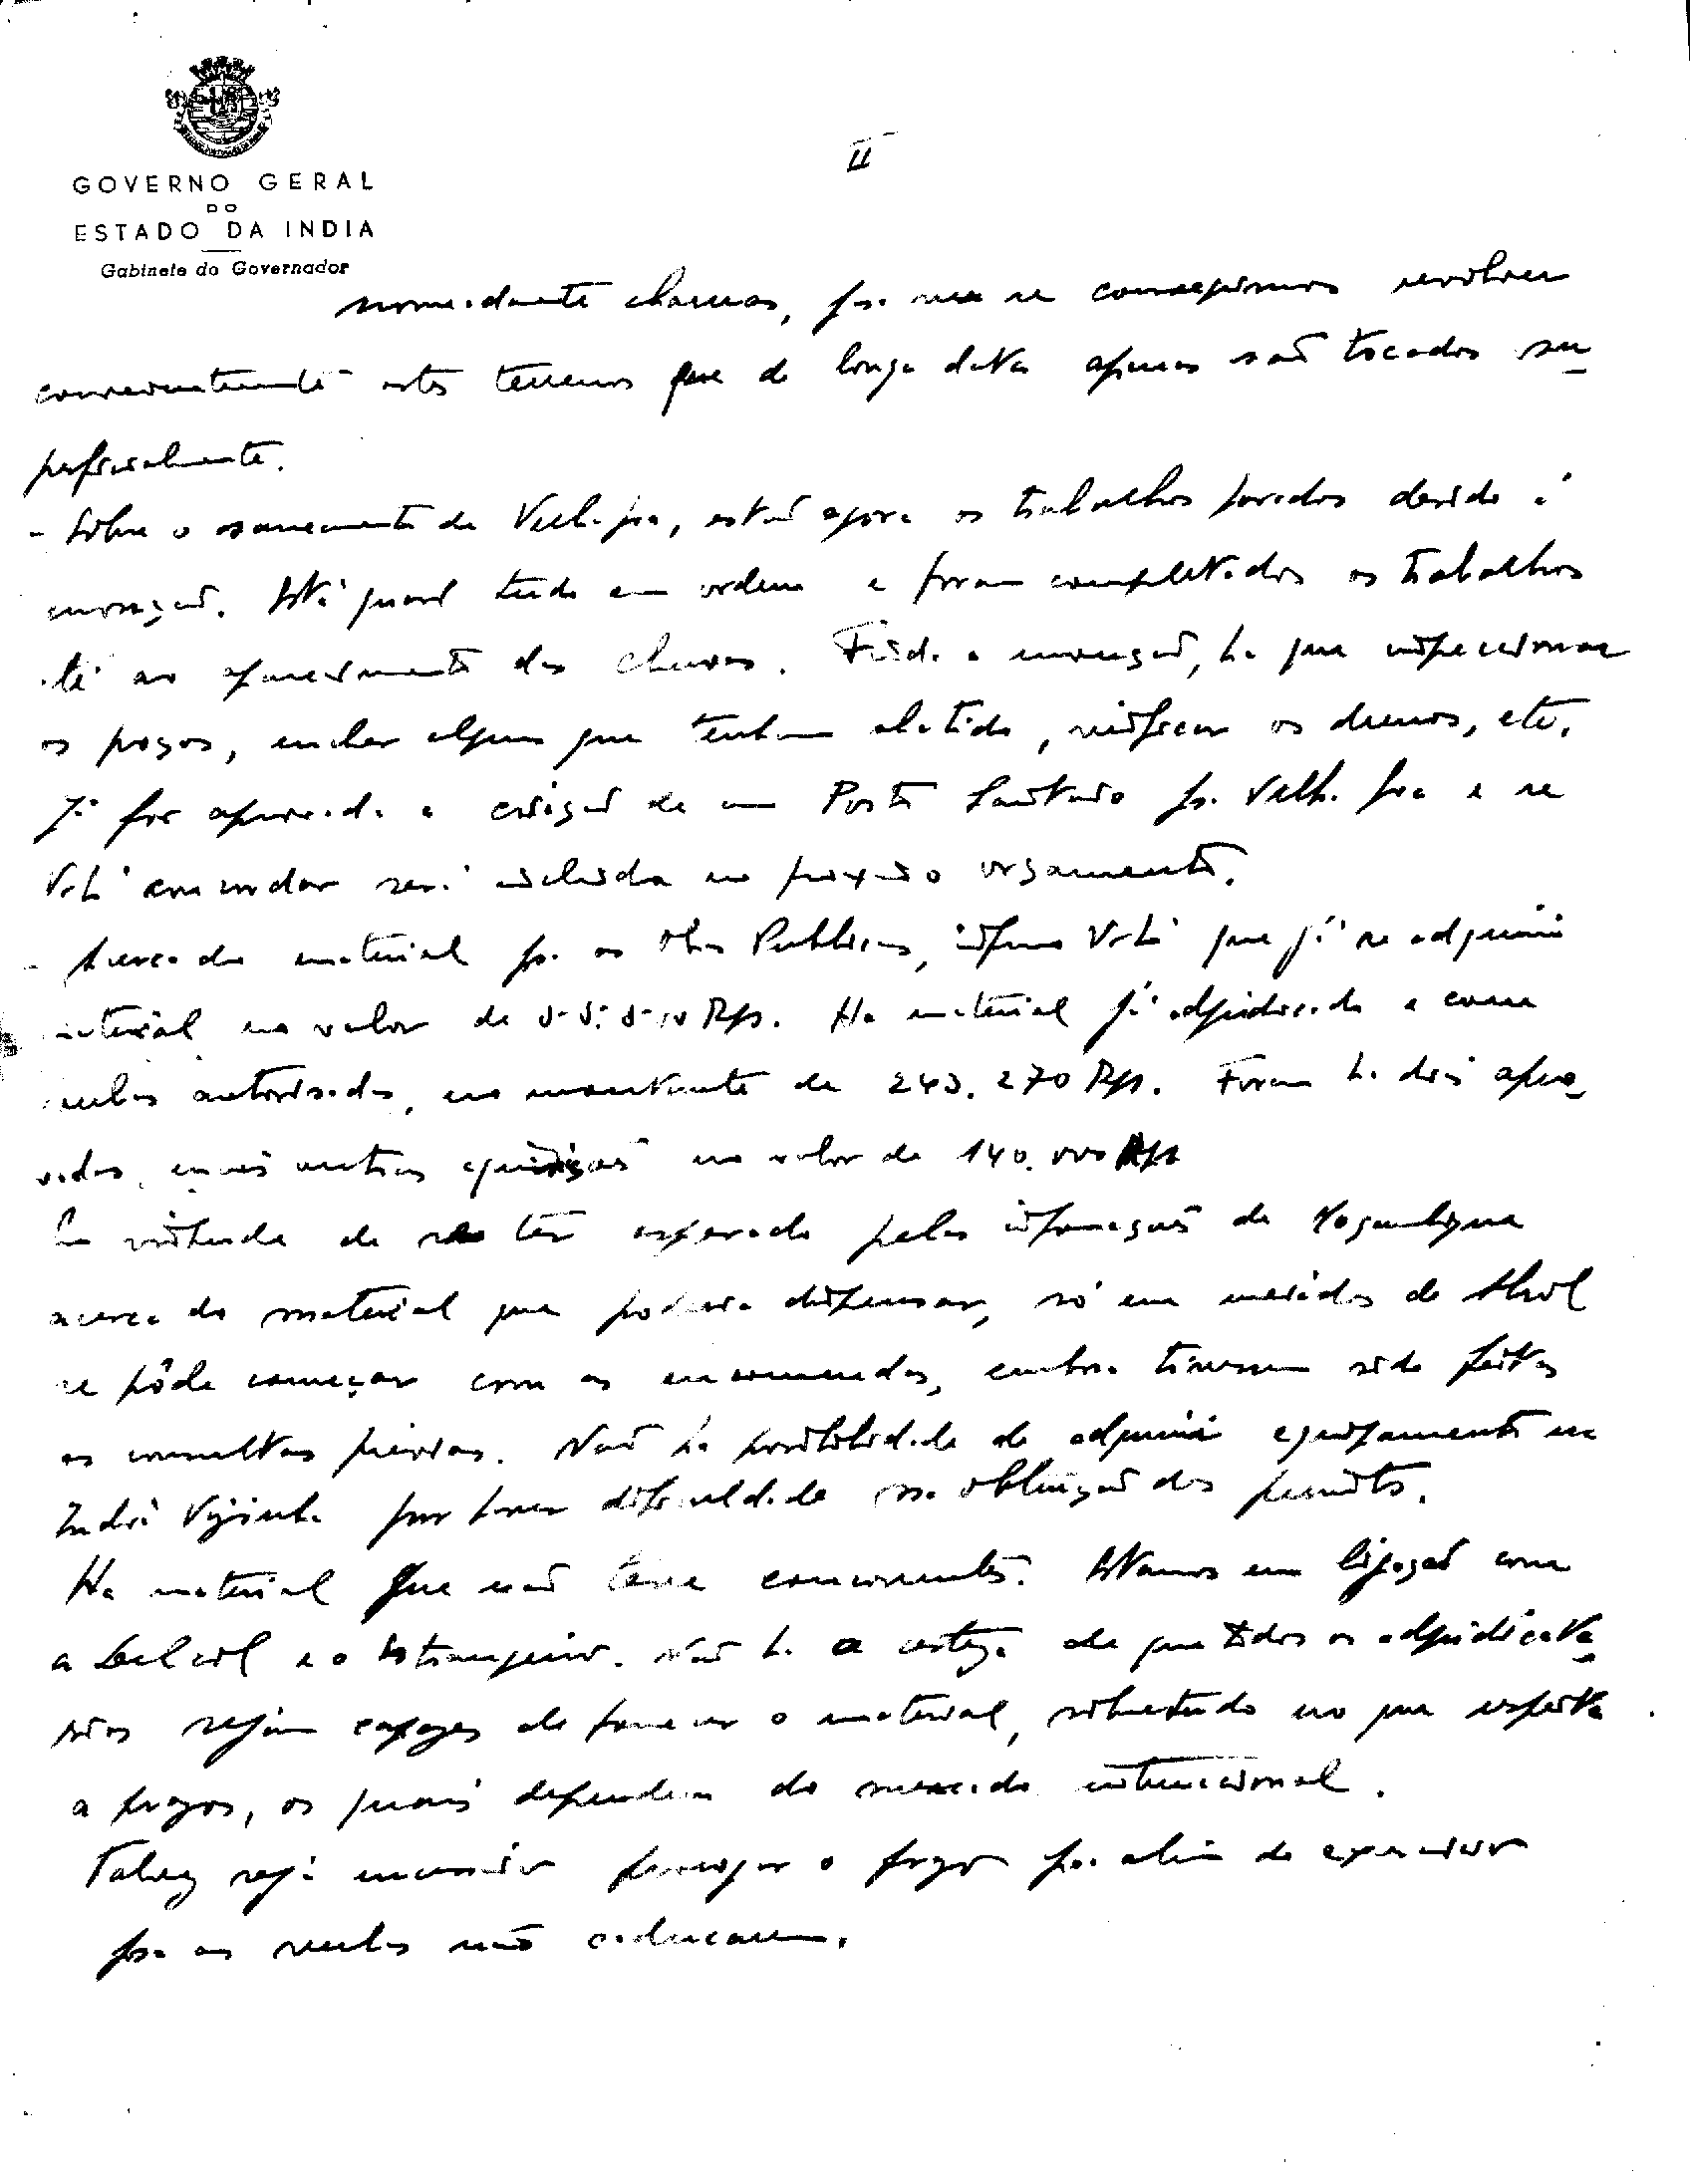 II
GOVERNO GERAL
DO
ESTADO DA INDIA
Gabinete do Governador
nomeadamente charruas, pa. ver se conseguimos revolver
convenientemente estes terrenos que de longa data apenas são tocados su-
perficialmente.
- Sôbre o saneamento de Velha Goa, estão agora os trabalhos parados devido á
monção. Está quasi tudo em ordem e foram completados os trabalhos
até ao aparecimento das chuvas. Finda a monção, ha que inspeccionar
os poços, encher algum que tenha abatido, verificar os drenos, etc.
Já foi aprovada a criação de um Posto Sanitario pa. Velha Goa e se
V. Exª concordar será incluida no proximo orçamento.
- Acerca do material pa. as Obras Publicas, informo V. Exª que já se adquiriu
material no valor de Rps. Ha material já adjudicado e com
verbas autorisadas, no montante de 243.270 Rps. Foram ha dias apro-
vadas mais outras aquisições no valor de 140.000 Rps
Em virtude de se ter esperado pelas informações de Moçambique
acerca do material que poderia dispensar, só em meiados de Abril
se pôde começar com as encomendas, embora tivessem sido feitas
as consultas previas. Não ha possibilidade de adquirir equipamento na
India Visinha por haver dificuldade na obtenção dos permits.
Ha material que não teve concorrentes. Estamos em ligação com
a e o Estrangeiro. Não ha a certeza de que todos os adjudicata-
rios sejam capazes de fornecer o material, sobretudo no que respeita
a prazos, os quais dependem do mercado internacional.
Talvez seja necessário prorrogar o prazo pa. alem do exercicio
pa. as verbas não caducarem.